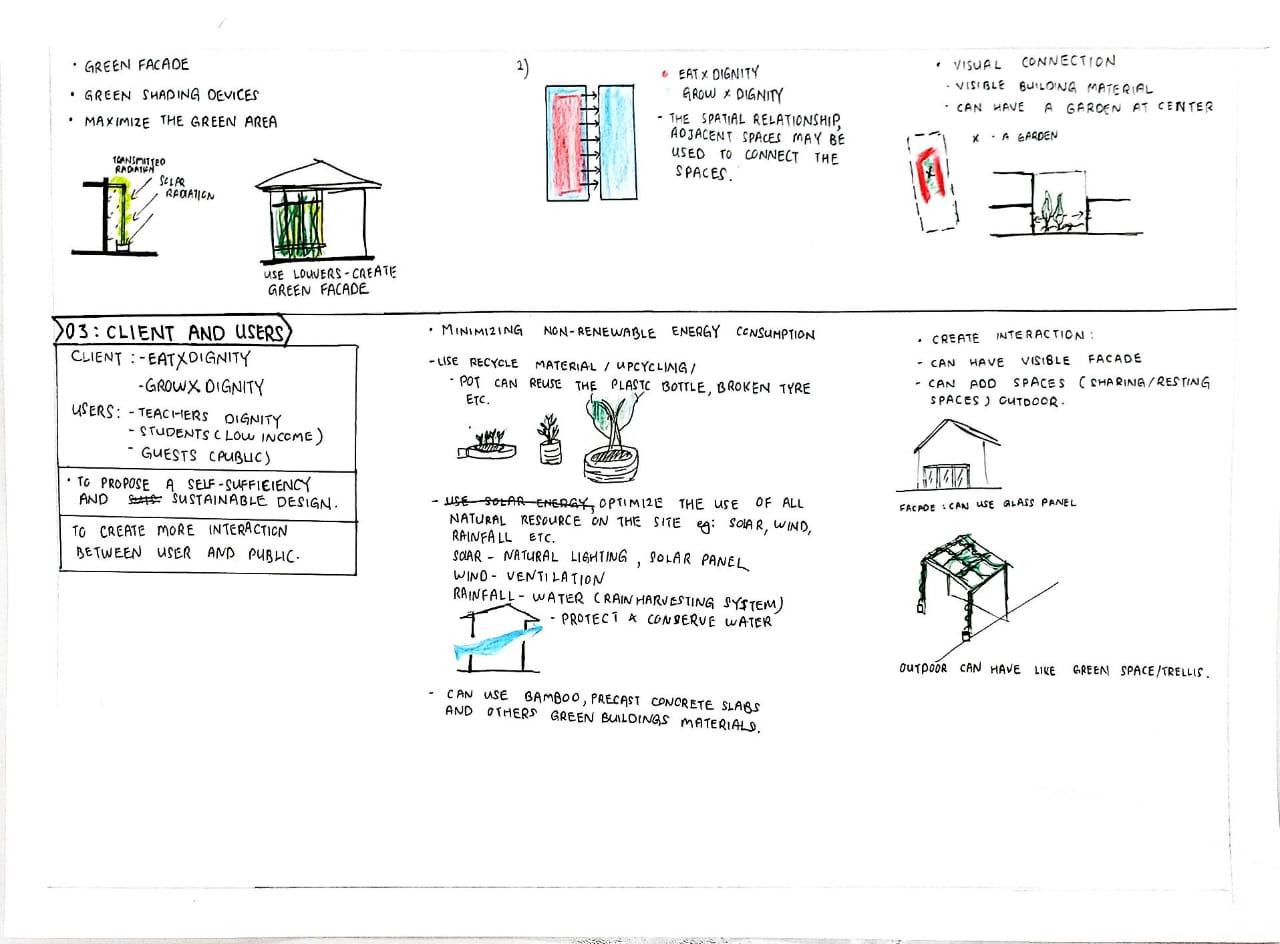 • GREEN FACADE
• GREEN SHADING DEVICES
• MAXIMIZE THE GREEN AREA
TRANSMITTED
RADIATION
SOLAR
RADIATION
USE LOUVERS - CREATE
GREEN FACADE
2)
• EAT X DIGNITY
GROW X DIGNITY
- THE SPATIAL RELATIONSHIP,
ADJACENT SPACES MAY BE
USED TO CONNECT THE
SPACES.
• VISUAL CONNECTION
- VISIBLE BUILDING MATERIAL
- CAN HAVE A GARDEN AT CENTER
X - A GARDEN
X
03: CLIENT AND USERS
CLIENT : - EATXDIGNITY
- GROWX DIGNITY
USERS: - TEACHERS DIGNITY
- STUDENTS (LOW INCOME)
- GUESTS (PUBLIC)
• TO PROPOSE A SELF-SUFFICIENCY
AND SUSTAINABLE DESIGN.
TO CREATE MORE INTERACTION
BETWEEN USER AND PUBLIC.
• MINIMIZING NON-RENEWABLE ENERGY CONSUMPTION
- USE RECYCLE MATERIAL / UPCYCLING /
- POT CAN REUSE THE PLASTC BOTTLE, BROKEN TYRE
ETC.
- USE SOLAR ENERGY, OPTIMIZE THE USE OF ALL
NATURAL RESOURCE ON THE SITE eg: SOLAR, WIND,
RAINFALL ETC.
SOLAR - NATURAL LIGHTING, SOLAR PANEL
WIND - VENTILATION
RAINFALL - WATER (RAIN HARVESTING SYSTEM)
- PROTECT & CONSERVE WATER
- CAN USE BAMBOO, PRECAST CONCRETE SLABS
AND OTHERS GREEN BUILDINGS MATERIALS.
• CREATE INTERACTION :
- CAN HAVE VISIBLE FACADE
- CAN ADD SPACES (SHARING/RESTING
SPACES) OUTDOOR.
FACADE : CAN USE GLASS PANEL
OUTDOOR CAN HAVE LIKE GREEN SPACE/TRELLIS.